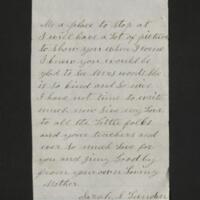 me a place to stop at
I will have a lot of pictures
to show you when I come
I know you would be
glad to see Mrs
is so kind and so nice
I have not time to write
much now Give my love
to all the little folks
and your teachers and
ever so much love for
you and Jimy Goodby
from your own loving
Mother
Sarah